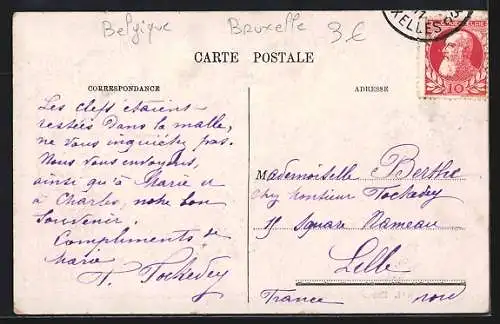 Belgique Bruxelle 3€
CARTE POSTALE
XELLES
10
CORRESPONDANCE
ADRESSE
Les clefs étaient
restées dans la malle,
ne vous inquiétez pas.
Nous vous envoyons,
ainsi qu'à Marie et
à Charles, notre bon
Souvenir.
Compliments de
Marie
Tockedey
Mademoiselle Berthe
Chez Monsieur Tockedey
Square Rameau
Lille
France nord